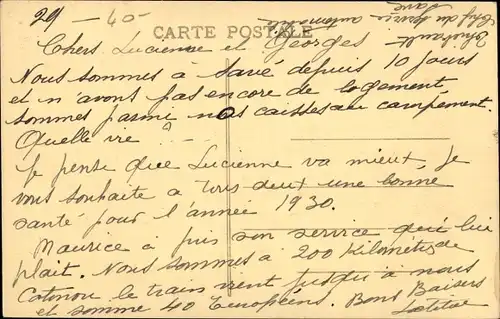 29 - 40
CARTE POSTALE
Thiebault
Chef du Service
automobile
Savé
Chers Lucienne et Georges
Nous sommes à Savé depuis 10 jours
et n'avons pas encore de logement,
sommes parmi nos caisses au campement.
Quelle vie ? - -
Je pense que Lucienne va mieux, je
vous souhaite a tous deux une bonne
santé pour l'année 1930.
Maurice à pris son service qui lui
plait. Nous sommes à 200 Kilomètres de
Cotonou le train vient jusqu'à nous
et somme 40 Européens. Bons Baisers
Laetitia